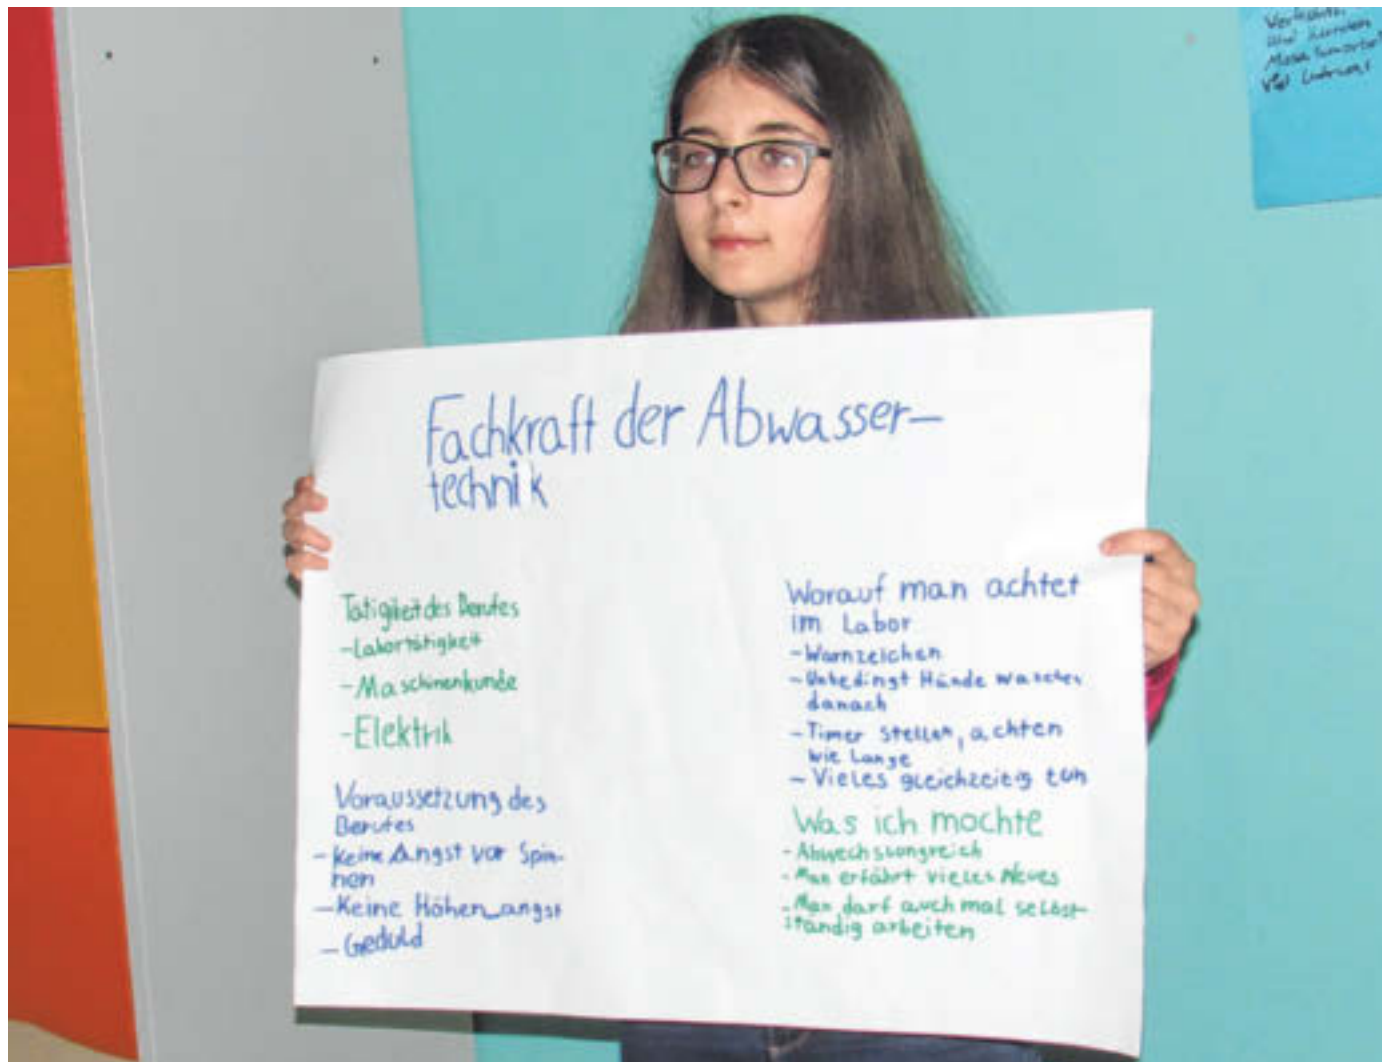 Fachkraft der Abwasser-
technik
Tätigkeit des Berufes
- Labortätigkeit
- Maschinenkunde
- Elektrik
Voraussetzung des
Berufes
- Keine Angst vor Spin-
nen
- Keine Höhen_angst
- Geduld
Worauf man achtet
im Labor
- Warnzeichen
- Unbedingt Hände waschen
danach
- Timer stellen, achten
wie lange
- Vieles gleichzeitig tun
Was ich mochte
- Abwechslungreich
- Man erfährt vieles Neues
- Man darf auch mal selbst-
ständig arbeiten
und Kunden
Viel